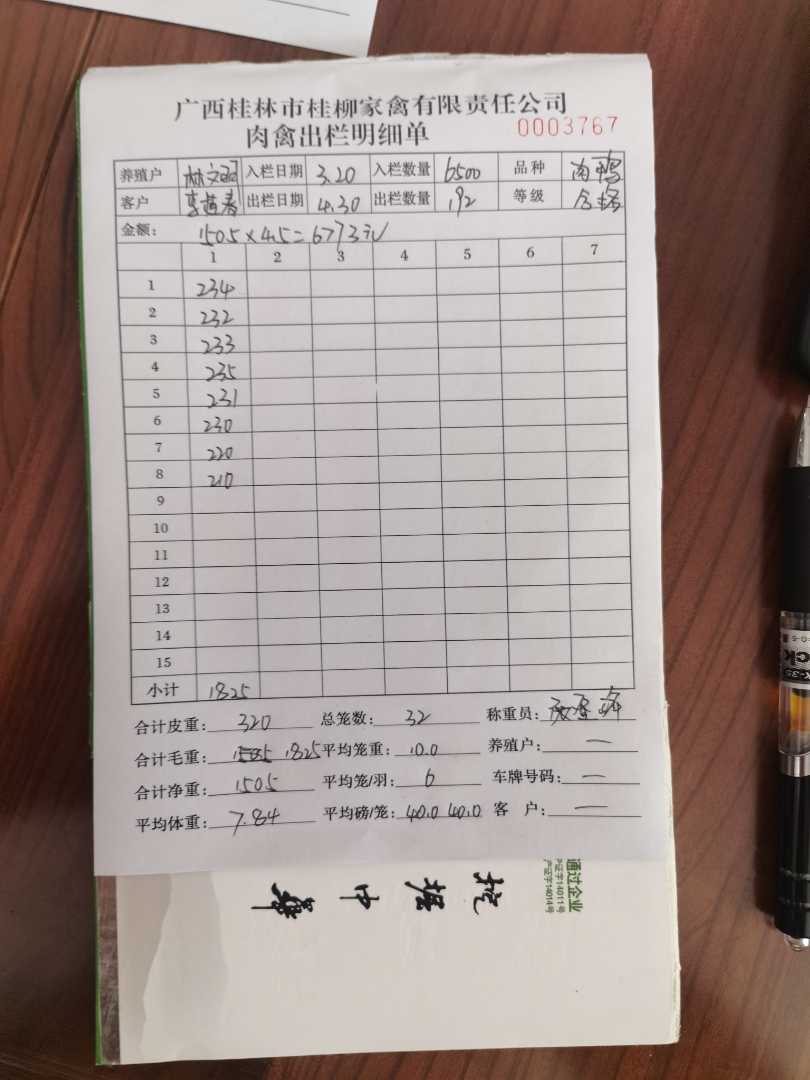 广西桂林市桂柳家禽有限责任公司
肉禽出栏明细单 0003767
养殖户 林文 入栏日期 3.20 入栏数量 6500 品种 肉鸭
客户 李 春 出栏日期 4.30 出栏数量 192 等级 合格
金额: 1505×4.5=6773元
1 2 3 4 5 6 7
1 234
2 232
3 233
4 235
5 231
6 230
7 220
8 210
9
10
11
12
13
14
15
小计 1825
合计皮重: 320 总笼数: 32 称重员:
合计毛重: 1825 平均笼重: 10.0 养殖户: —
合计净重: 1505 平均笼/羽: 6 车牌号码: —
平均体重: 7.84 平均磅/笼: 40.0 40.0 客 户: —
通过企业
产证字14011号
产证字14014号